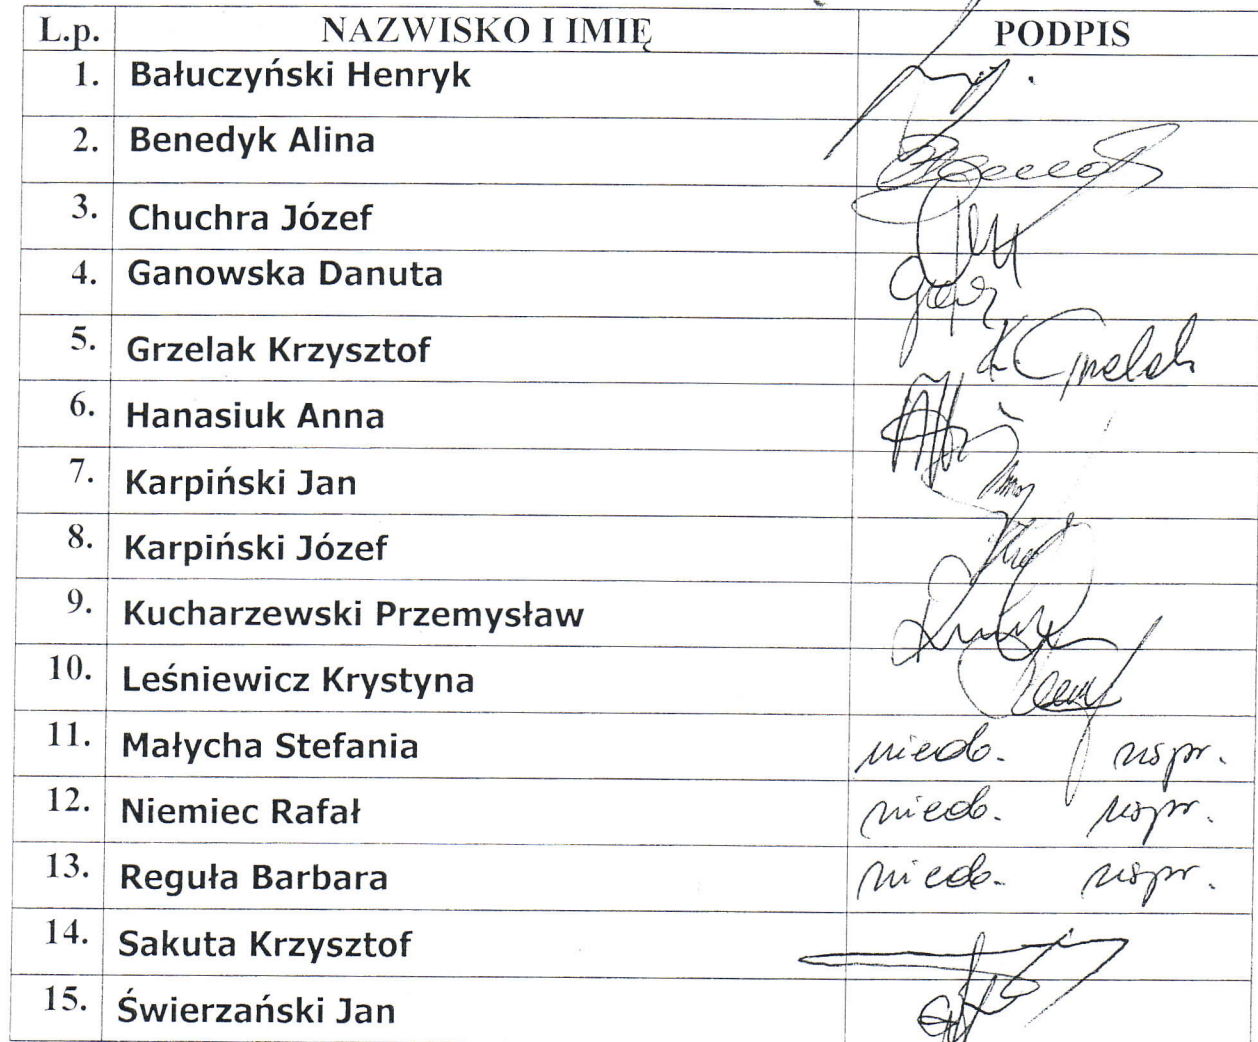 L.p. NAZWISKO I IMIĘ PODPIS
1. Bałuczyński Henryk
2. Benedyk Alina
3. Chuchra Józef
4. Ganowska Danuta
5. Grzelak Krzysztof K. Grzelak
6. Hanasiuk Anna
7. Karpiński Jan
8. Karpiński Józef
9. Kucharzewski Przemysław
10. Leśniewicz Krystyna
11. Małycha Stefania nieob. uspr.
12. Niemiec Rafał nieob. uspr.
13. Reguła Barbara nieob. uspr.
14. Sakuta Krzysztof
15. Świerzański Jan